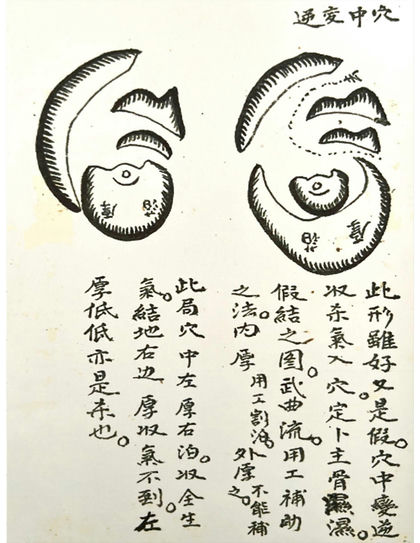 逆变中穴
厚 泊
厚 泊
此形雖好又是假。穴中变逆
収杀氣入穴定卜主骨濕濕。
假結之图武曲流。用工補助
之法内厚用工割泊。外厚不能補之。
此局穴中左厚右泊。収全生
氣。結地右边厚収氣不到。左
厚低低亦是杀也。